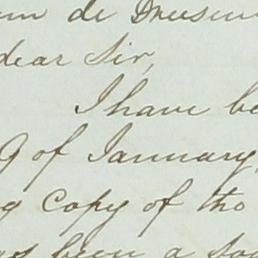 de
dear Sir,
I have be
9 of January,
g Copy of the
been a